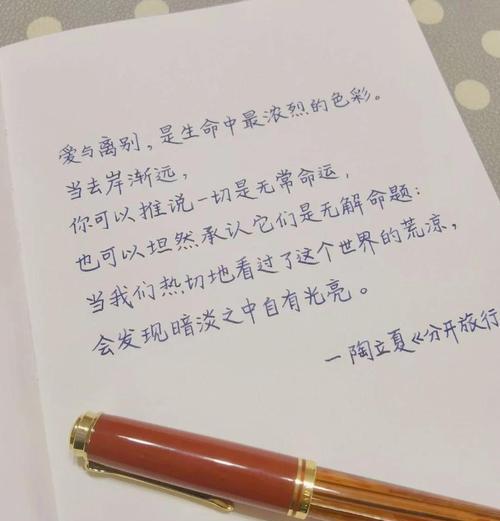 爱与离别，是生命中最浓烈的色彩。
当去岸渐远，
你可以推说一切是无常命运，
也可以坦然承认它们是无解命题：
当我们热切地看过了这个世界的荒凉，
会发现暗淡之中自有光亮。
—陶立夏《分开旅行